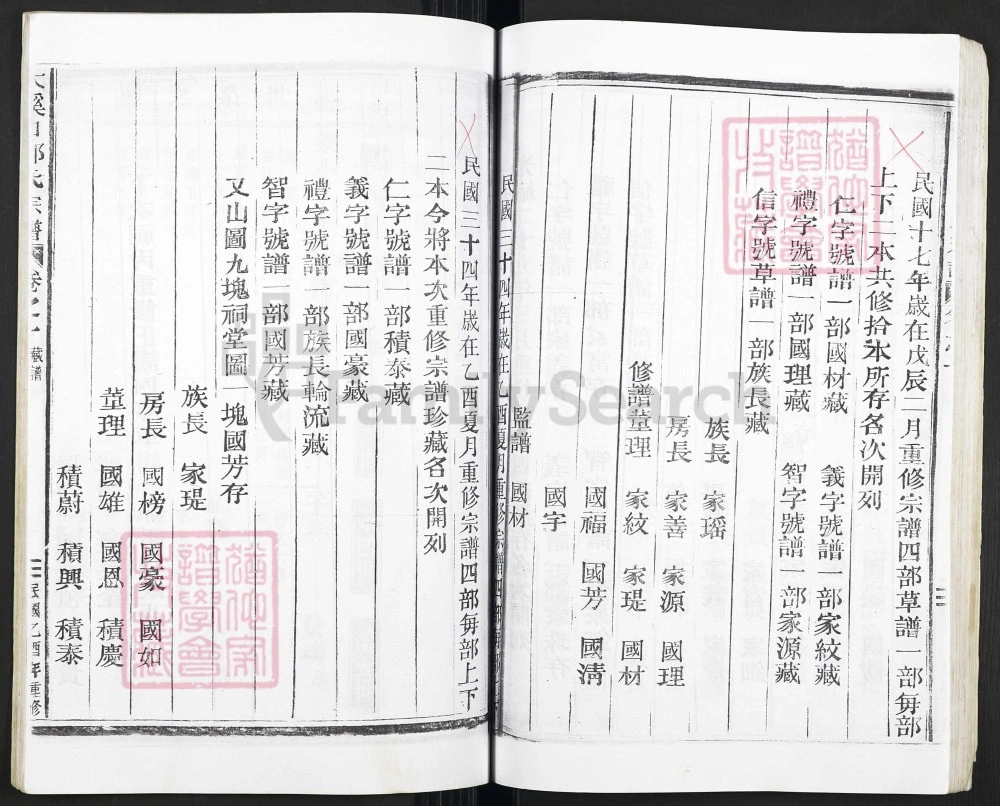 民國十七年歲在戊辰二月重修宗譜四部草譜一部每部
上下二本共修拾本所存名次開列
仁字號譜一部國材藏 義字號譜一部家紋藏
禮字號譜一部國理藏 智字號譜一部家源藏
信字號草譜一部族長藏
族長 家瑤
房長 家善 家源 國理
修譜董理 家紋 家瑅 國材
國福 國芳 國清
國宇
監譜 國材
民國三十四年歲在乙酉夏月重修宗譜四部
民國三十四年歲在乙酉夏月重修宗譜四部每部上下
二本今將本次重修宗譜珍藏名次開列
仁字號譜一部積泰藏
義字號譜一部國豪藏
禮字號譜一部族長輪流藏
智字號譜一部國芳藏
又山圖九塊祠堂圖一塊國芳存
族長 家瑅
房長 國榜 國豪 國如
董理 國雄 國恩 積慶
積蔚 積興 積泰
氏宗譜 卷之一 藏譜 民國乙酉年重修
FamilySearch